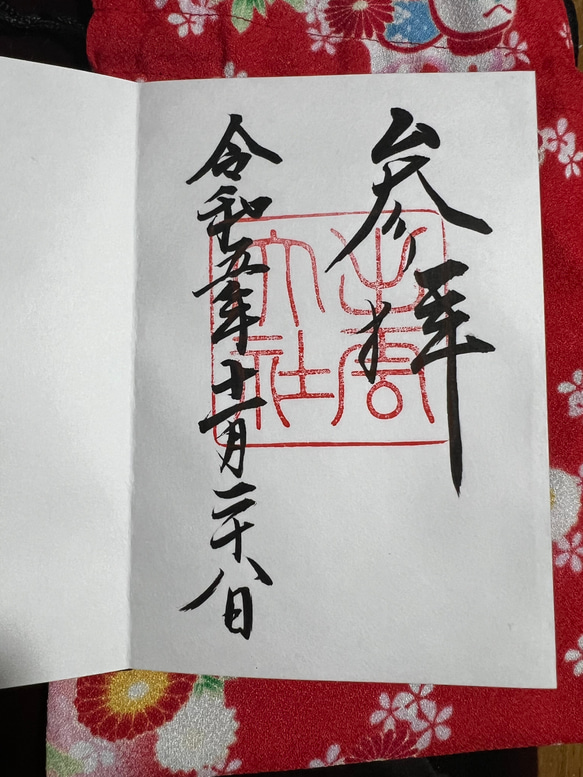 参拝
出雲
大社
令和五年十一月二十八日